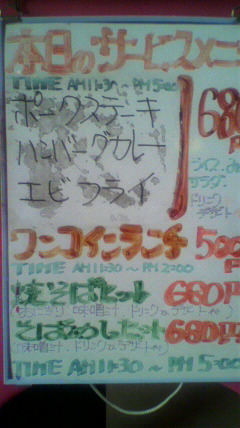 本日のサービスメニ
TIME AM11:30~PM5:00
ポークステーキ
ハンバーグカレー
エビフライ
680
ライス、み
サラダ、
ドリンク
デザート
ワンコインランチ 500
TIME AM11:30~PM2:00
焼そばセット 680円
味噌汁、ドリンク&デザート
そばめしセット 680円
(味噌汁、ドリンク&デザート
TIME AM11:30~PM5:00